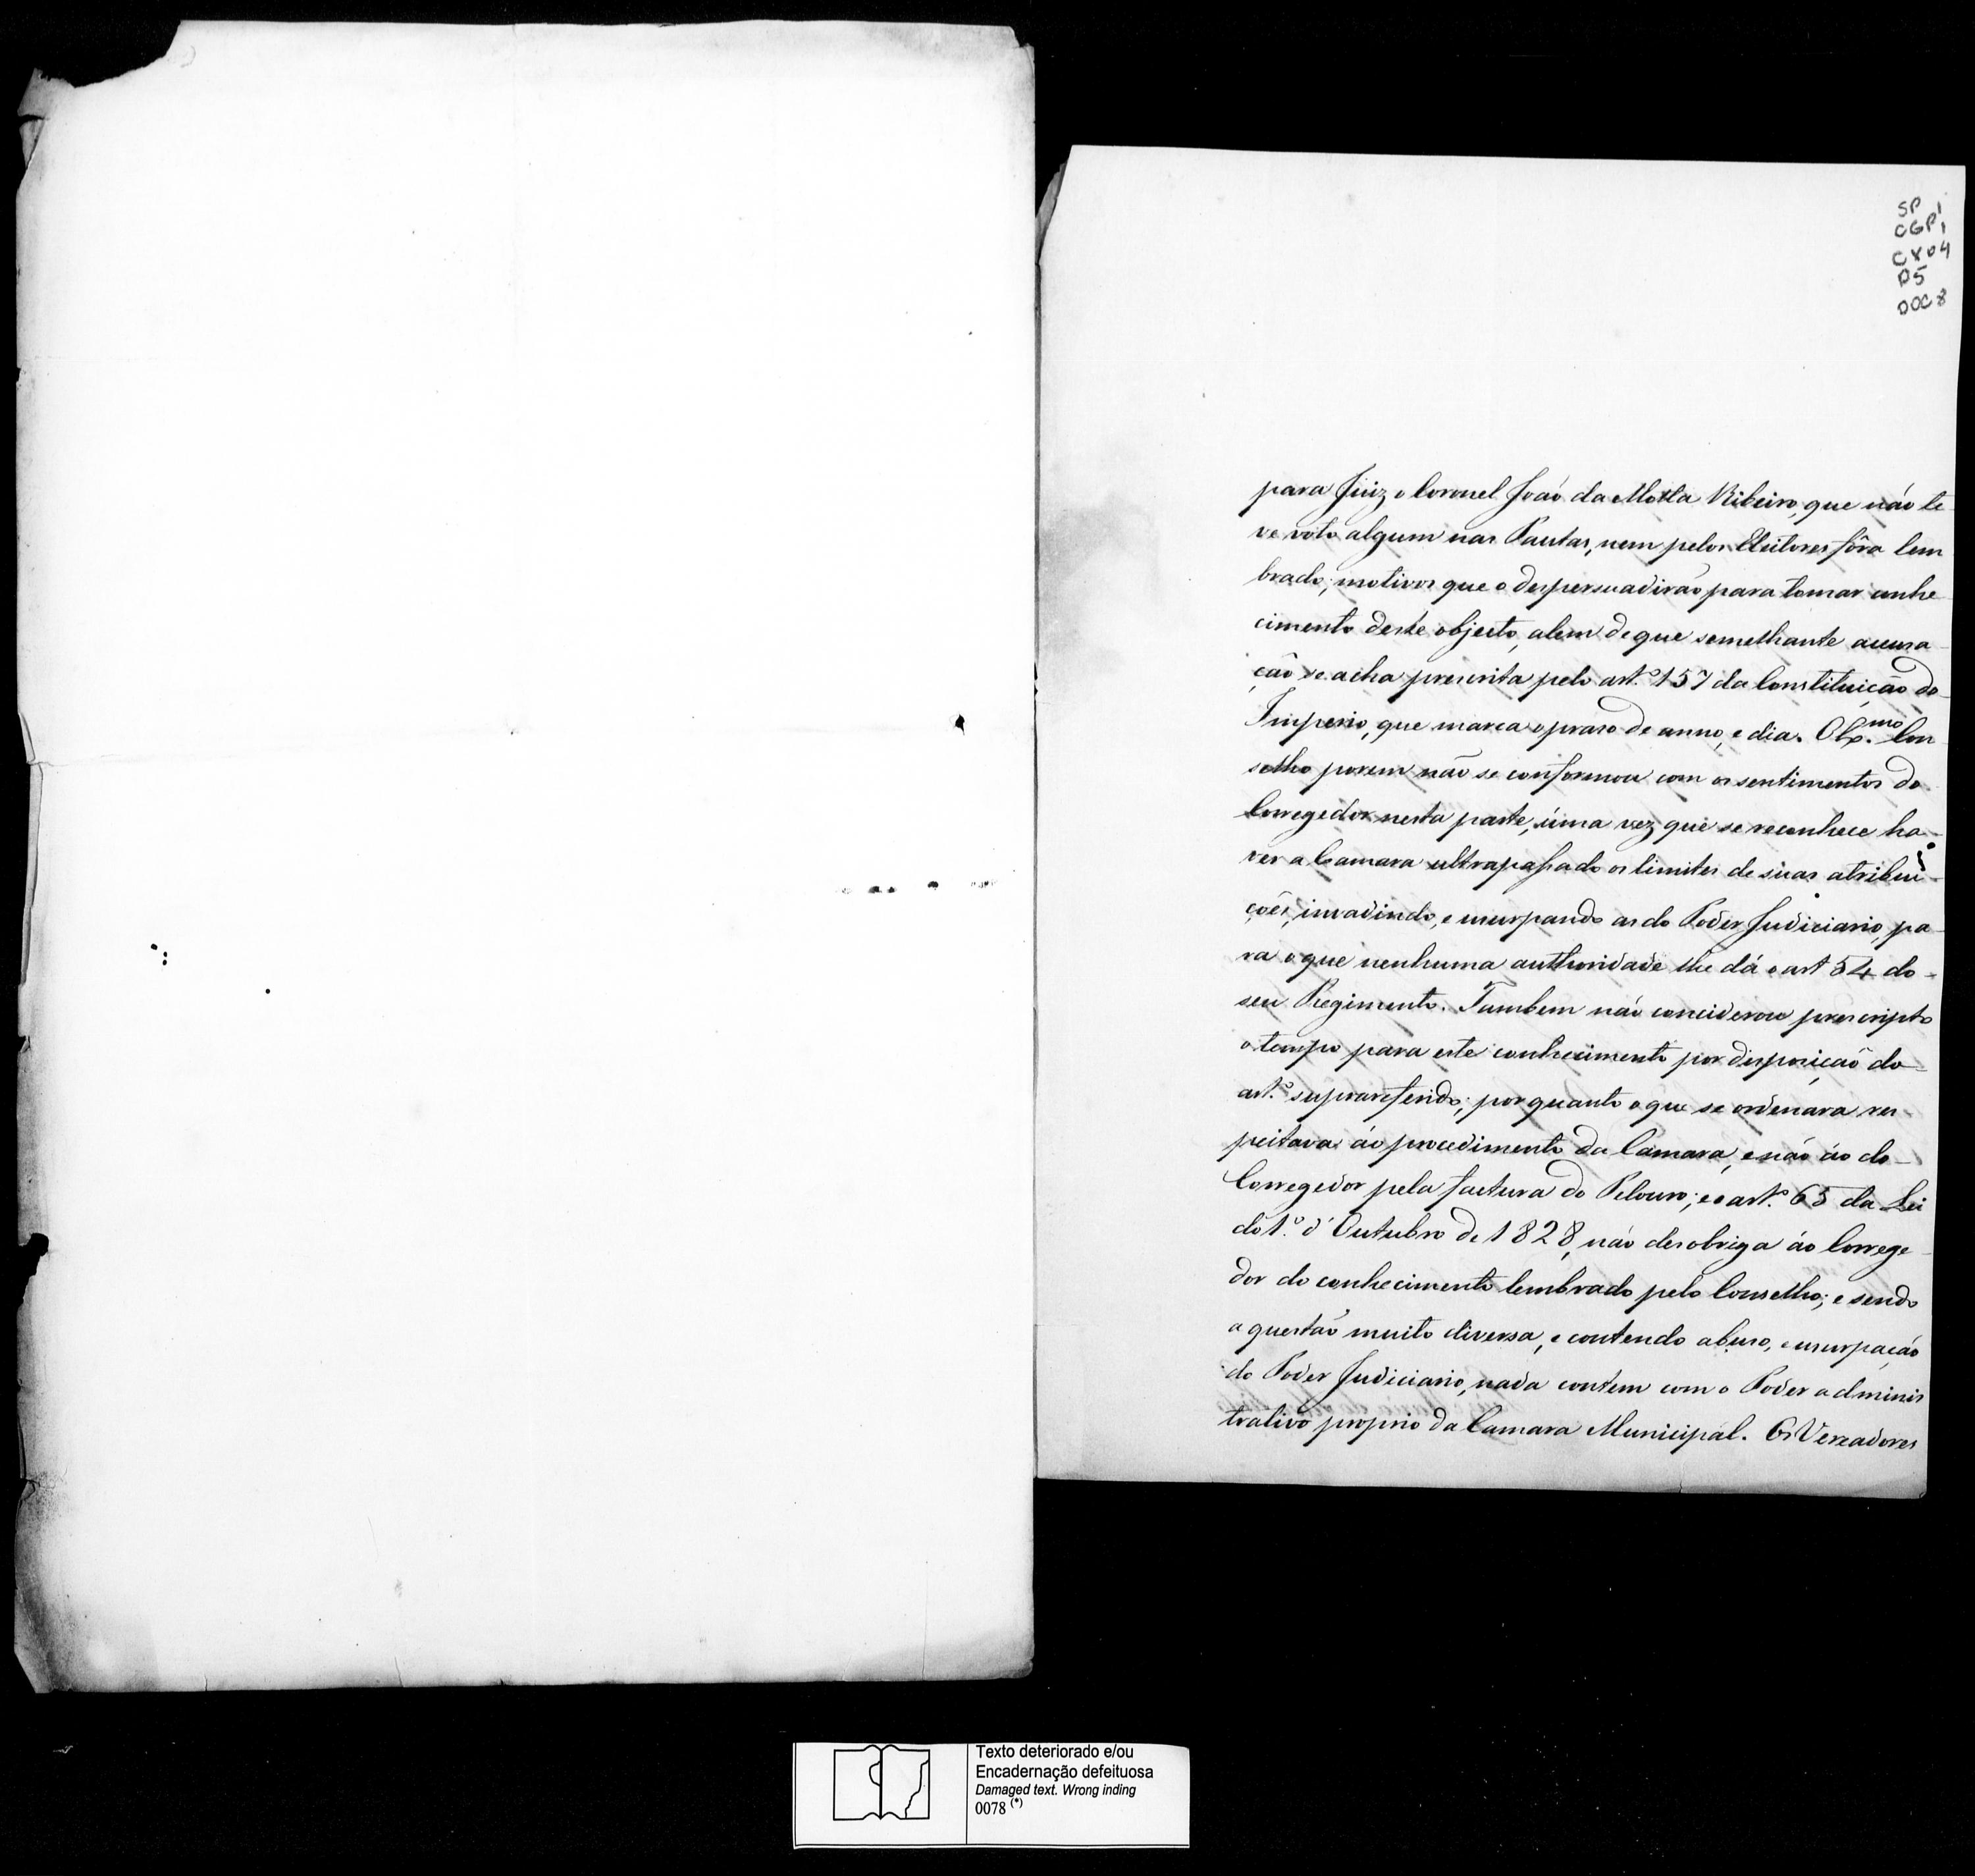 SP
CGP1
CX04
D5
DOC 8
para Juiz o Coronel João da Motta Ribeiro, que não te
ve voto algum nas Pautas, nem pelos Eleitores fôra lem
brado; motivos que o despersuadirão para tomar conhe
cimento deste objecto, alem de que semelhante accusa
ção se acha prescrita pelo art.º 157 da Constituição do
Imperio, que marca o praso de anno, e dia. O Ex.mo Con
selho porem não se conformou com os sentimentos do
Corregedor nesta parte, uma vez que se reconhece ha
ver a Camara ultrapassado os limites de suas atribui
ções, invadindo, e usurpando as do Poder Judiciario, pa
ra o que nenhuma authoridade lhe dá o art 54 do
seu Regimento. Tambem não conciderou prescripto
o tempo para este conhecimento por disposição do
art.º supra referido; por quanto o que se ordenara res
peitava áo procedimento da Camara, e não áo do
Corregedor pela factura do Pelouro; e o art.º 65 da Lei
do 1.º d'Outubro de 1828, não desobriga áo Correge
dor do conhecimento lembrado pelo Conselho; e sendo
a questão muito diversa, e contendo abuso, e usurpação
do Poder Judiciario, nada contem com o Poder adminis
trativo proprio da Camara Municipal. Os Vereadores
Texto deteriorado e/ou
Encadernação defeituosa
Damaged text. Wrong inding
0078 (*)